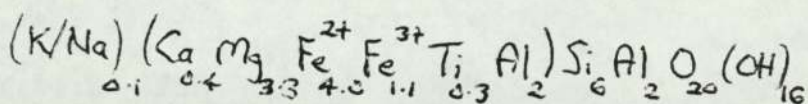 (K/Na)₀.₁ (Ca₀.₄ Mg₃.₃ Fe²⁺₄.₀ Fe³⁺₁.₁ Ti₀.₃ Al₂) Si₆ Al₂ O₂₀ (OH)₁₆